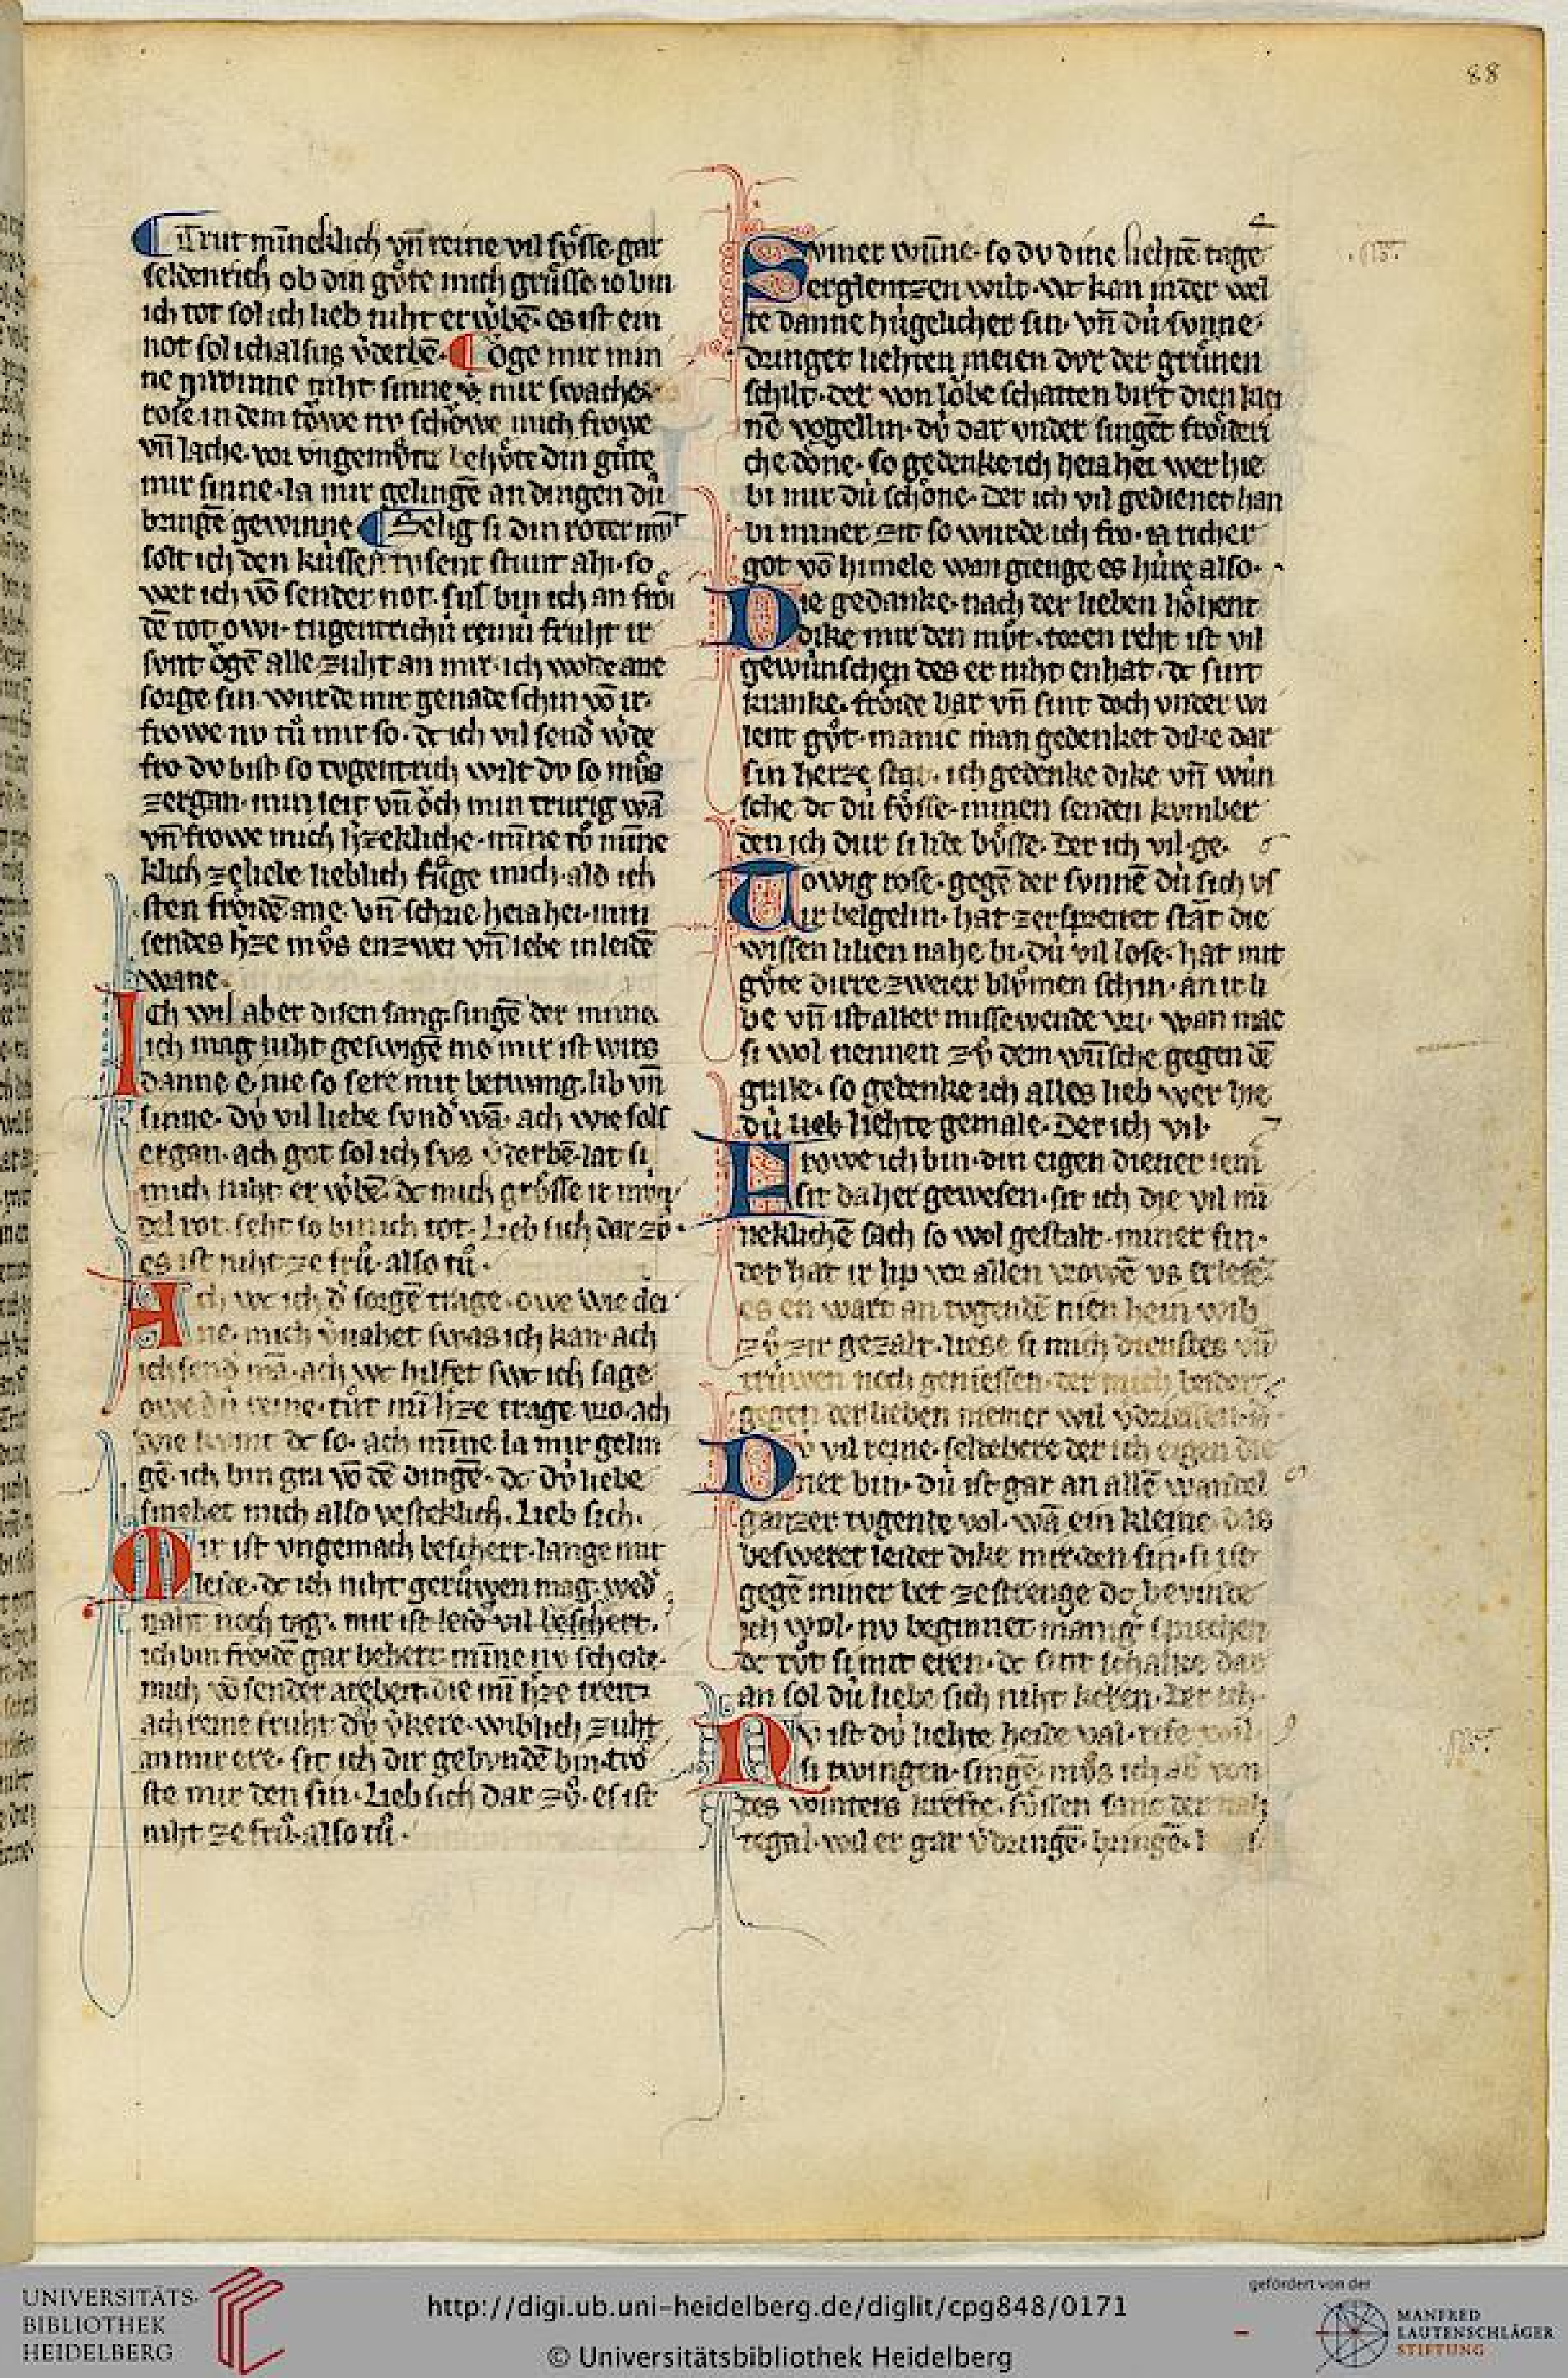 88
Trut mīneklich vn̄ reine vil sv̊sse gar
seldenrich ob din gv̊te mich grůsse io bin
ich tot sol ich lieb niht erẘbē· es ist ein
not sol ich alsus v̓derbē· Oͮge mir min
ne gewinne niht sinne mir swache
rose in dem toͮwe nv schoͮwe mich froͮwe
vn̄ lache· vor vngemv̊te behv̊te din gůte
mir sinne· la mir gelingē an dingen dú
bringē gewinne Selig si din roter mv̊t
solt ich den kússen tvsent stunt ahi· so
wer ich vō sender not· sus bin ich an froͤi
dē tot owi· tugentrichú reinú fruht ir
sont oͮgē alle zuht an mir· ich wolde ane
sorge sin wurde mir genade schin vō ir·
frowe nv tů mir so· dc ich vil send̓ ẘde
fro dv bist so tvgentrich wilt dv so mv̊s
zergan· min leit vn̄ oͮch min trurig wā
vn̄ frowe mich h̓zekliche· mīne tv̊ mīne
klich ze liebe lieblich fůge mich ald ich
sten froͤidē ane· vn̄ schrie heia hei· min
sendes h̓ze mv̊s enzwei vn̄ lebe in leidē
wane·
ICh wil aber disen sang singē der minne·
ich mag niht geswigē me mir ist wirs
danne e· nie so sere mir betwang· lib vn̄
sinne· dv́ vil liebe svnd̓ wā· ach wie sols
ergan· ach got sol ich svs v̓derbē· lat si
mich niht erẘbē· dc mich grv̊sse ir mvn
del rot· seht so bin ich tot· Lieb sich dar zv̊·
es ist niht ze frů· also tů·
Ach wc ich d̓ sorgē trage· owe wie clei
ne· mich v̓nahet swas ich kan· ach
ich send̓ mā· ach wc hilfet swc ich sage
owe dú reine· tůt mī h̓ze trage vro· ach
wie kvmt dc so· ach mīne la mir gelin
gē· ich bin gra vō dē dingē· dc dv́ liebe
smehet mich also vesteklich· Lieb sich·
Mir ist vngemach beschert· lange mir
leide· dc ich niht gerůwen mag· wed̓
naht noch tag· mir ist leid̓ vil beschert·
ich bin froͤidē gar behert· mīne nv scheide·
mich vō sender arebeit· die mī h̓ze treit·
ach reine fruht dv́ v̓kere· wiblich zuht
an mir ere· sit ich dir gebvndē bin· troͤ
ste mir den sin· Lieb sich dar zv̊· es ist
niht ze frů· also tů·
Svmer wūne· so dv dine liehtē tage
erglentzen wilt· wc kan in der wel
te danne húgelicher sin· vn̄ dú svnne·
dringet liehten meien dvr der grůnen
schilt· der von loͮbe schatten birt dien klei
nē vogellin· dv́ dar vnder singēt froͤideri
che doͤne· so gedenke ich heia hei wer hie
bi mir dú schoͤne· Der ich vil gedienet han
bi miner zit so wurde ich fro· ia richer
got vō himele wan gienge es húre also·
Die gedanke· nach der lieben hoͤhent
dike mir den mv̊t· toren reht ist vil
gewúnschen des er niht enhat· dc sint
kranke· froͤide bar vn̄ sint doch vnder wi
lent gv̊t· manic man gedenket dike dar
sin herze stat· ich gedenke dike vn̄ wún
sche dc dú sv̊sse· minen senden kvmber
den ich dur si lide bv̊sse· Der ich vil·ge·
Towig rose· gegē der svnnē dú sich vf
ir belgelin· hat zerspreitet stāt die
wissen lilien nahe bi· dú vil lose· hat mit
gv̊te dirre zweier blv̊men schin· an ir li
be vn̄ ist aller missewende vri· wan mac
si wol nennen zv̊ dem wūsche gegen dē
grale· so gedenke ich alles lieb wer hie
dú lieb liehte gemale· Der ich vil·
Frowe ich bin· din eigen diener iem̄
sit daher gewesen· sit ich die vil mī
neklichē sach so wol gestalt· miner sin·
der hat ir lip vor allen vrowē vs erlesē·
es en wart an tvgendē nien hein wib
zv̊ zir gezalt· liese si mich dienstes vn̄
trúwen noch geniessen· der mich
gegen der lieben niemer wil
Dv́ vil reine· seldebere der ich eigen die
ner bin· dú ist gar an allē wandel
ganzer tvgende vol· wā ein kleine· das
besweret leider dike mir den sin· si ist
gegē miner bet ze strenge dc bevinde
ich wol· nv beginnet manig sprechen
dc tv̊t si mit eren· dc sint schalke dar
an sol dú liebe sich niht keren· Der ich·
Nv ist dv́ liehte heide val· rife wil
si twingen· singē mv̊s ich ab̓ von
des winters krefte· sv̊ssen sanc der nah
tegal· wil er gar v̓dringē· bringē·
UNIVERSITÄTS-
BIBLIOTHEK
HEIDELBERG
http://digi.ub.uni-heidelberg.de/diglit/cpg848/0171
© Universitätsbibliothek Heidelberg
gefördert von der
MANFRED
LAUTENSCHLÄGER
STIFTUNG